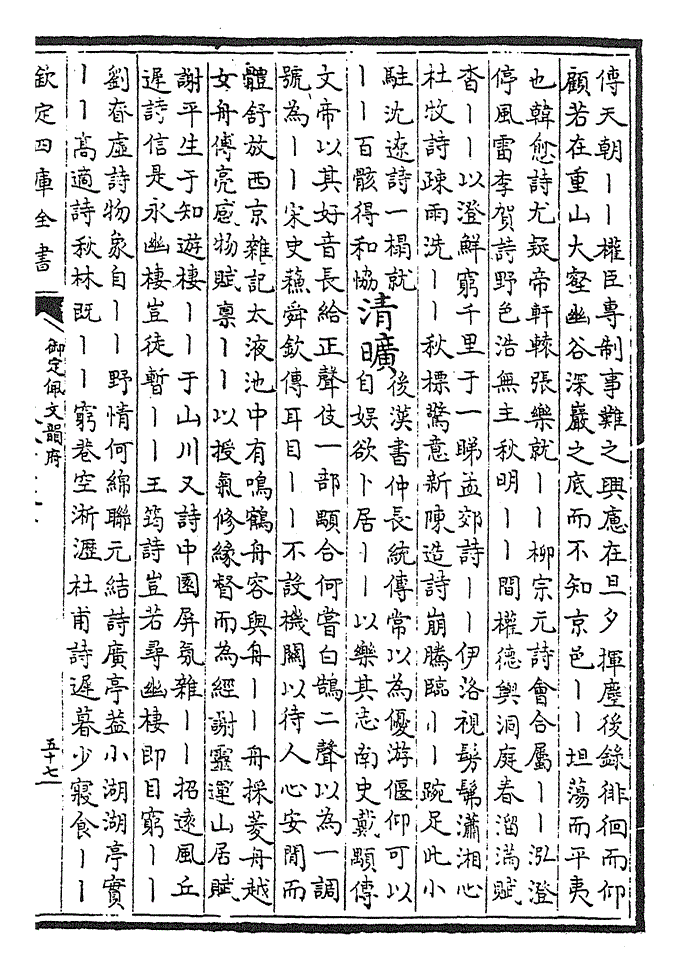 傳天朝丨丨權臣專制事難之興應在旦夕揮麈後錄徘徊而仰
顧若在重山大壑幽谷深巖之底而不知京邑丨丨坦蕩而平夷
也韓愈詩尤疑帝軒轅張樂就丨丨柳宗元詩會合屬丨丨泓澄
停風雷李賀詩野色浩無主秋明丨丨間權德輿洞庭春溜滿賦
杳丨丨以澄鮮窮千里于一睇孟郊詩丨丨伊洛視髣髴瀟湘心
杜牧詩疎雨洗丨丨秋標驚意新陳造詩崩騰臨丨丨踠足此小
駐沈遼詩一榻就
丨丨百骸得和協
清曠
後漢書仲長統傳常以為優游偃仰可以
自娛欲卜居丨丨以樂其志南史戴顒傳
文帝以其好音長給正聲伎一部顒合何嘗白鵠二聲以為一調
號為丨丨宋史蘇舜欽傳耳目丨丨不設機關以待人心安閒而
體舒放西京雜記太液池中有鳴鶴舟容與舟丨丨舟採菱舟越
女舟傅亮感物賦稟丨丨以授氣修緣督而為經謝靈運山居賦
謝平生于知遊棲丨丨于山川又詩中園屏氛雜丨丨招遠風丘
遲詩信是永幽棲豈徒暫丨丨王筠詩豈若尋幽棲即目窮丨丨
劉眘虛詩物象自丨丨野情何綿聯元結詩廣亭蓋小湖湖亭實
丨丨高適詩秋林既丨丨窮巷空淅瀝杜甫詩遲暮少寢食丨丨
欽定四庫全書
御定佩文韻府
五十七